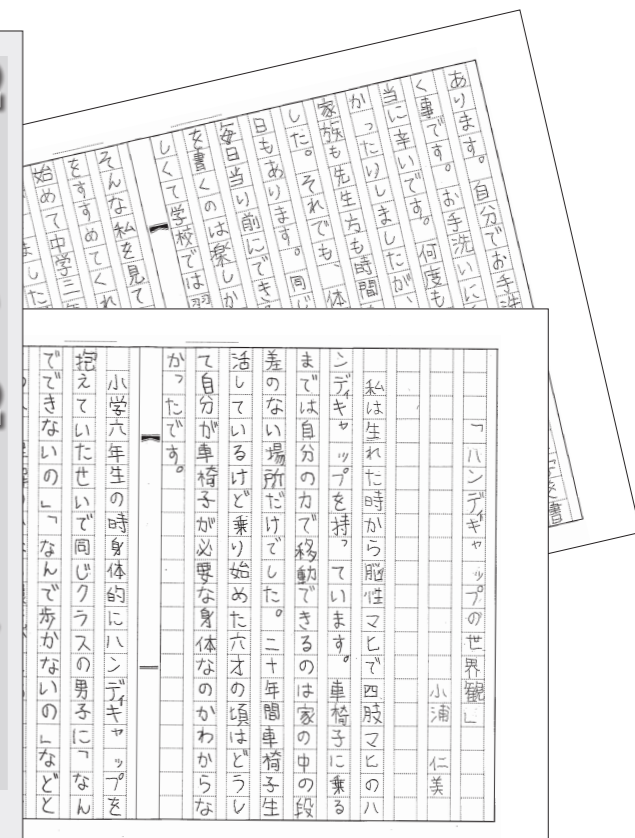 「ハンディキャップの世界観」
小浦 仁美
私は生れた時から脳性マヒで四肢マヒのハ
ンディキャップを持っています。車椅子に乗る
までは自分の力で移動できるのは家の中の段
差のない場所だけでした。二十年間車椅子生
活しているけど乗り始めた六才の頃はどうし
て自分が車椅子が必要な身体なのかわからな
かったです。
小学六年生の時身体的にハンディキャップを
抱えていたせいで同じクラスの男子に「なん
でできないの」「なんで歩かないの」などと
あります。自分でお手洗
く事です。お手洗いに
当に辛いです。何度も
かったりしましたが、
家族も先生方も時間
した。それでも、体
日もあります。同じ
毎日当り前にでき
を書くのは楽しか
しくて学校では習
そんな私を見て
をすすめてくれ
始めて中学三年
ました
書